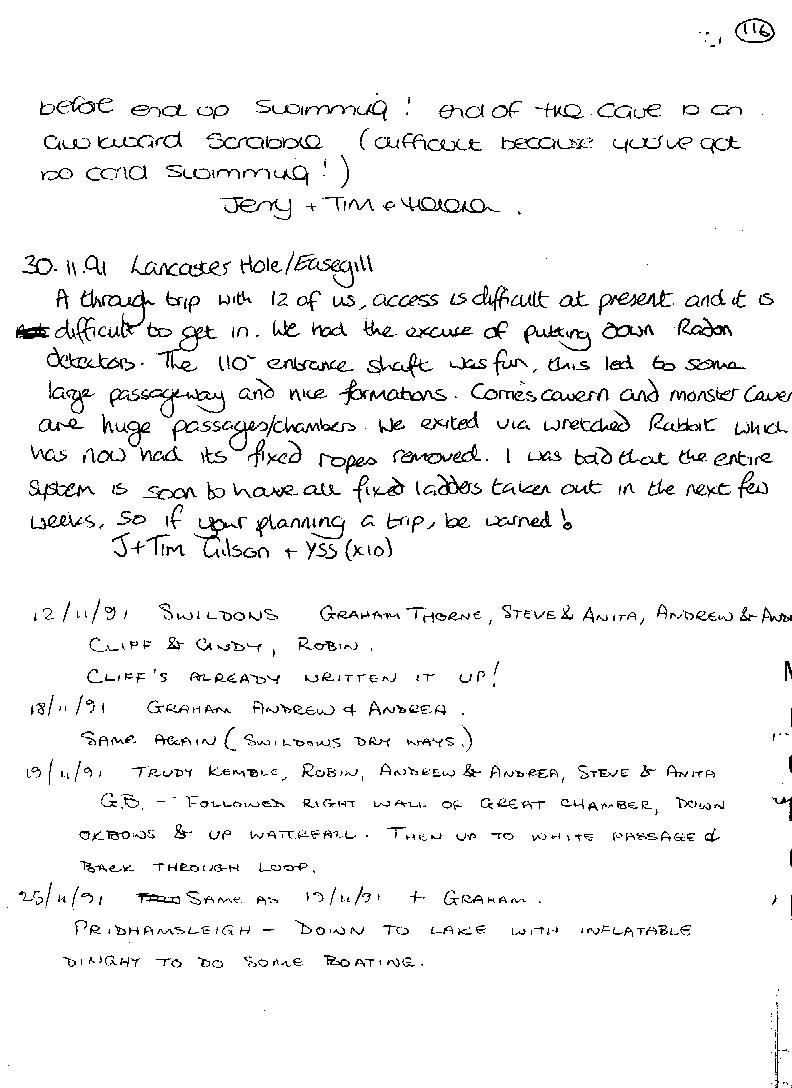 116
before end up swimming! end of the cave is an
awkward scrabble (difficult because you've got
so cold swimming!)
Jerry + Tim +
30.11.91 Lancaster Hole/Easegill
A through trip with 12 of us, access is difficult at present and it is
difficult to get in. We had the excuse of putting down Radon
detectors. The 110' entrance shaft was fun, this led to some
large passageway and nice formations. Cornes cavern and monster Caver
are huge passages/chambers. We exited via wretched Rabbit which
has now had its fixed ropes removed. I was told that the entire
system is soon to have all fixed ladders taken out in the next few
weeks, so if your planning a trip, be warned!
J+Tim Gilson + YSS (x10)
12/11/91 SWILDONS GRAHAM THORNE, STEVE & ANITA, ANDREW & AND
CLIFF & CINDY, ROBIN.
CLIFF'S ALREADY WRITTEN IT UP!
18/11/91 GRAHAM ANDREW & ANDREA.
SAME AGAIN (SWILDOWS DRY WAYS.)
19/11/91 TRUDY KEMBLE, ROBIN, ANDREW & ANDREA, STEVE & ANITA
G.B. - FOLLOWED RIGHT WALL OF GREAT CHAMBER, DOWN
OXBOWS & UP WATERFALL. THEN UP TO WHITE PASSAGE &
BACK THROUGH LOOP.
25/11/91 SAME AS 19/11/91 + GRAHAM.
PRIDHAMSLEIGH - DOWN TO LAKE WITH INFLATABLE
DINGHY TO DO SOME BOATING.